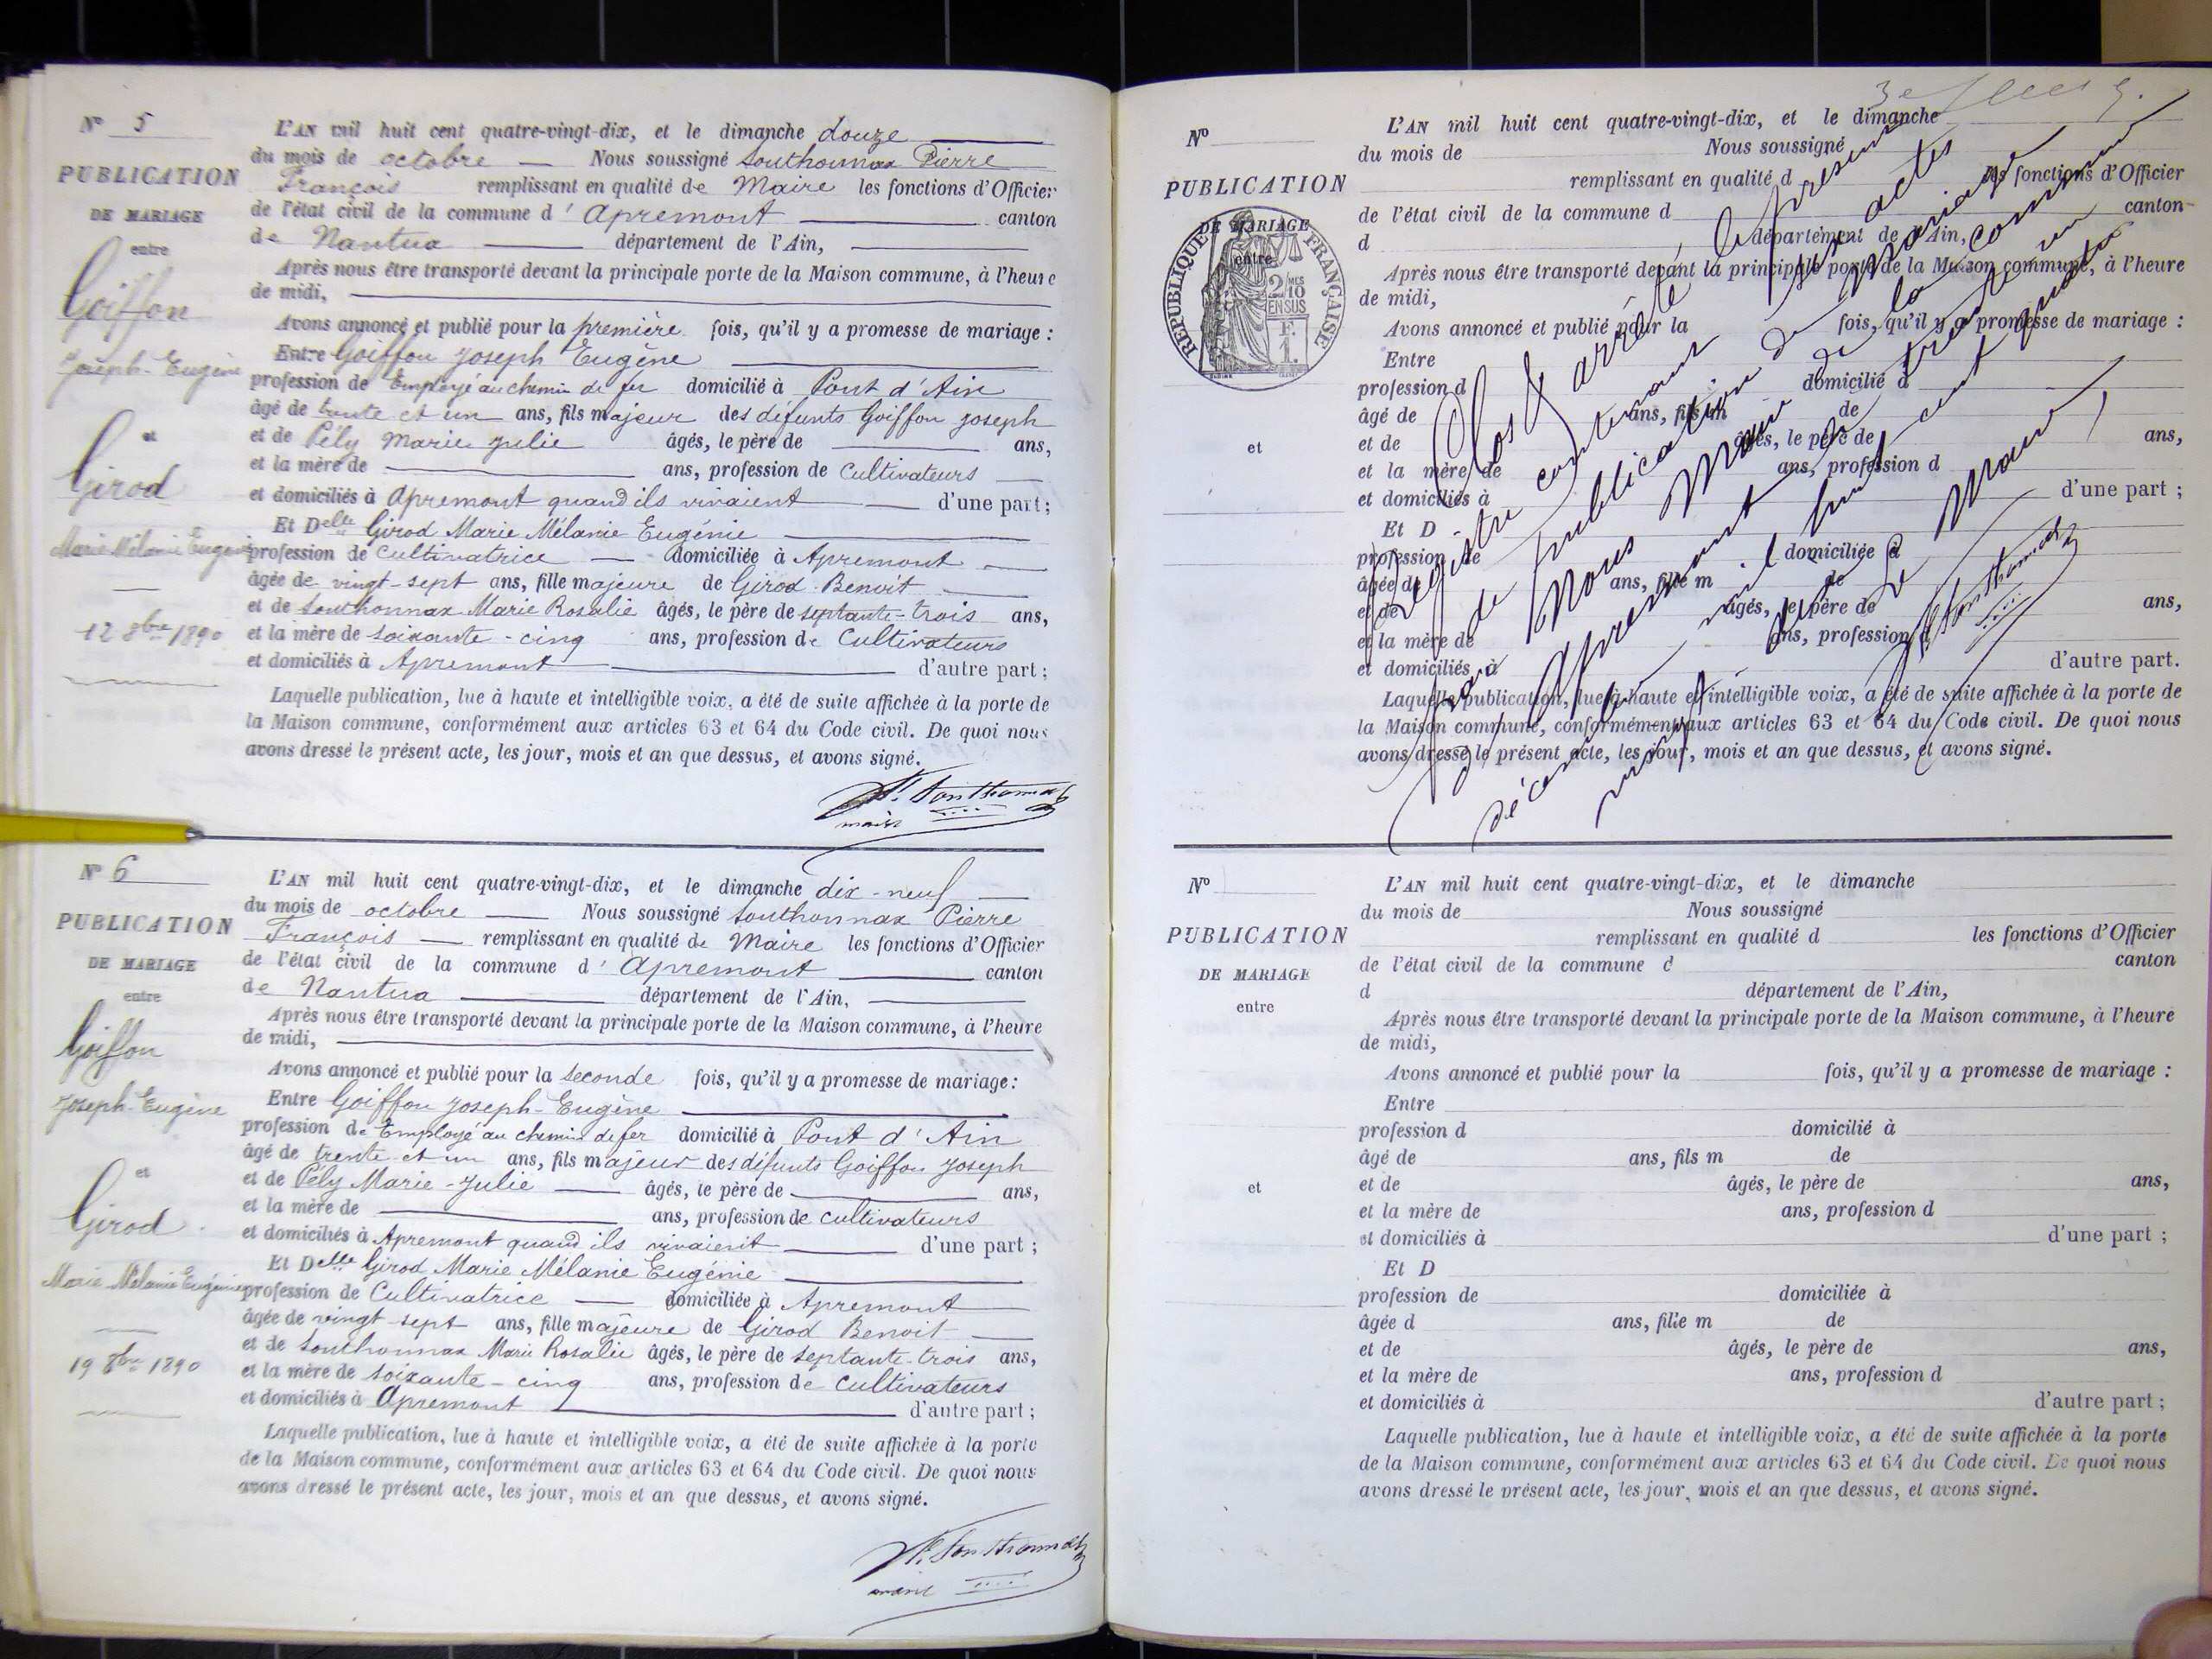 N° 5
PUBLICATION
DE MARIAGE
entre
Goiffon
Joseph-Eugène
et
Girod
Marie Mélanie Eugénie
12 8bre 1890
L'AN mil huit cent quatre-vingt-dix, et le dimanche douze
du mois de octobre Nous soussigné Southonnax Pierre
François remplissant en qualité de Maire les fonctions d'Officier
de l'état civil de la commune d'Apremont canton
de Nantua département de l'Ain,
Après nous être transporté devant la principale porte de la Maison commune, à l'heure
de midi,
Avons annoncé et publié pour la première fois, qu'il y a promesse de mariage :
Entre Goiffon Joseph Eugène
profession de Employé au chemin de fer domicilié à Pont d'Ain
âgé de trente et un ans, fils majeur des défunts Goiffon Joseph
et de Pély Marie Julie âgés, le père de ans,
et la mère de ans, profession de Cultivateurs
et domiciliés à Apremont quand ils vivaient d'une part ;
Et Delle Girod Marie Mélanie Eugénie
profession de Cultivatrice domiciliée à Apremont
âgée de vingt-sept ans, fille majeure de Girod Benoit
et de Southonnax Marie Rosalie âgés, le père de septante-trois ans,
et la mère de soixante-cinq ans, profession de Cultivateurs
et domiciliés à Apremont d'autre part ;
Laquelle publication, lue à haute et intelligible voix, a été de suite affichée à la porte de
la Maison commune, conformément aux articles 63 et 64 du Code civil. De quoi nous
avons dressé le présent acte, les jour, mois et an que dessus, et avons signé.
Southonnax
maire
N° 6
PUBLICATION
DE MARIAGE
entre
Goiffon
Joseph-Eugène
et
Girod
Marie Mélanie Eugénie
19 8bre 1890
L'AN mil huit cent quatre-vingt-dix, et le dimanche dix-neuf
du mois de octobre Nous soussigné Southonnax Pierre
François remplissant en qualité de Maire les fonctions d'Officier
de l'état civil de la commune d'Apremont canton
de Nantua département de l'Ain,
Après nous être transporté devant la principale porte de la Maison commune, à l'heure
de midi,
Avons annoncé et publié pour la seconde fois, qu'il y a promesse de mariage :
Entre Goiffon Joseph-Eugène
profession de Employé au chemin de fer domicilié à Pont d'Ain
âgé de trente et un ans, fils majeur des défunts Goiffon Joseph
et de Pély Marie-Julie âgés, le père de ans,
et la mère de ans, profession de cultivateurs
et domiciliés à Apremont quand ils vivaient d'une part ;
Et Delle Girod Marie Mélanie Eugénie
profession de Cultivatrice domiciliée à Apremont
âgée de vingt-sept ans, fille majeure de Girod Benoit
et de Southonnax Marie Rosalie âgés, le père de septante-trois ans,
et la mère de soixante-cinq ans, profession de Cultivateurs
et domiciliés à Apremont d'autre part ;
Laquelle publication, lue à haute et intelligible voix, a été de suite affichée à la porte
de la Maison commune, conformément aux articles 63 et 64 du Code civil. De quoi nous
avons dressé le présent acte, les jour, mois et an que dessus, et avons signé.
Southonnax
maire
N°
PUBLICATION
DE MARIAGE
entre
RÉPUBLIQUE FRANÇAISE
2/10MES
EN SUS
1 F.
et
L'AN mil huit cent quatre-vingt-dix, et le dimanche
du mois de Nous soussigné
remplissant en qualité d les fonctions d'Officier
de l'état civil de la commune d canton
d département de l'Ain,
Après nous être transporté devant la principale porte de la Maison commune, à l'heure
de midi,
Avons annoncé et publié pour la fois, qu'il y a promesse de mariage :
Entre
profession d domicilié à
âgé de ans, fils m de
et de âgés, le père de ans,
et la mère de ans, profession d
et domiciliés à d'une part ;
Et D
profession de domiciliée à
âgée de ans, fille m de
et de âgés, le père de ans,
et la mère de ans, profession d
et domiciliés à d'autre part.
Laquelle publication, lue à haute et intelligible voix, a été de suite affichée à la porte de
la Maison commune, conformément aux articles 63 et 64 du Code civil. De quoi nous
avons dressé le présent acte, les jour, mois et an que dessus, et avons signé.
Clos & arrêté le présent
registre contenant six actes
de publication de mariage
par Nous Maire de la commune
d'Apremont le trente un
décembre mil huit cent quatre
vingt dix
Le Maire
Southonnax
N°
PUBLICATION
DE MARIAGE
entre
et
L'AN mil huit cent quatre-vingt-dix, et le dimanche
du mois de Nous soussigné
remplissant en qualité d les fonctions d'Officier
de l'état civil de la commune d canton
d département de l'Ain,
Après nous être transporté devant la principale porte de la Maison commune, à l'heure
de midi,
Avons annoncé et publié pour la fois, qu'il y a promesse de mariage :
Entre
profession d domicilié à
âgé de ans, fils m de
et de âgés, le père de ans,
et la mère de ans, profession d
et domiciliés à d'une part ;
Et D
profession de domiciliée à
âgée d ans, fille m de
et de âgés, le père de ans,
et la mère de ans, profession d
et domiciliés à d'autre part ;
Laquelle publication, lue à haute et intelligible voix, a été de suite affichée à la porte
de la Maison commune, conformément aux articles 63 et 64 du Code civil. De quoi nous
avons dressé le présent acte, les jour, mois et an que dessus, et avons signé.